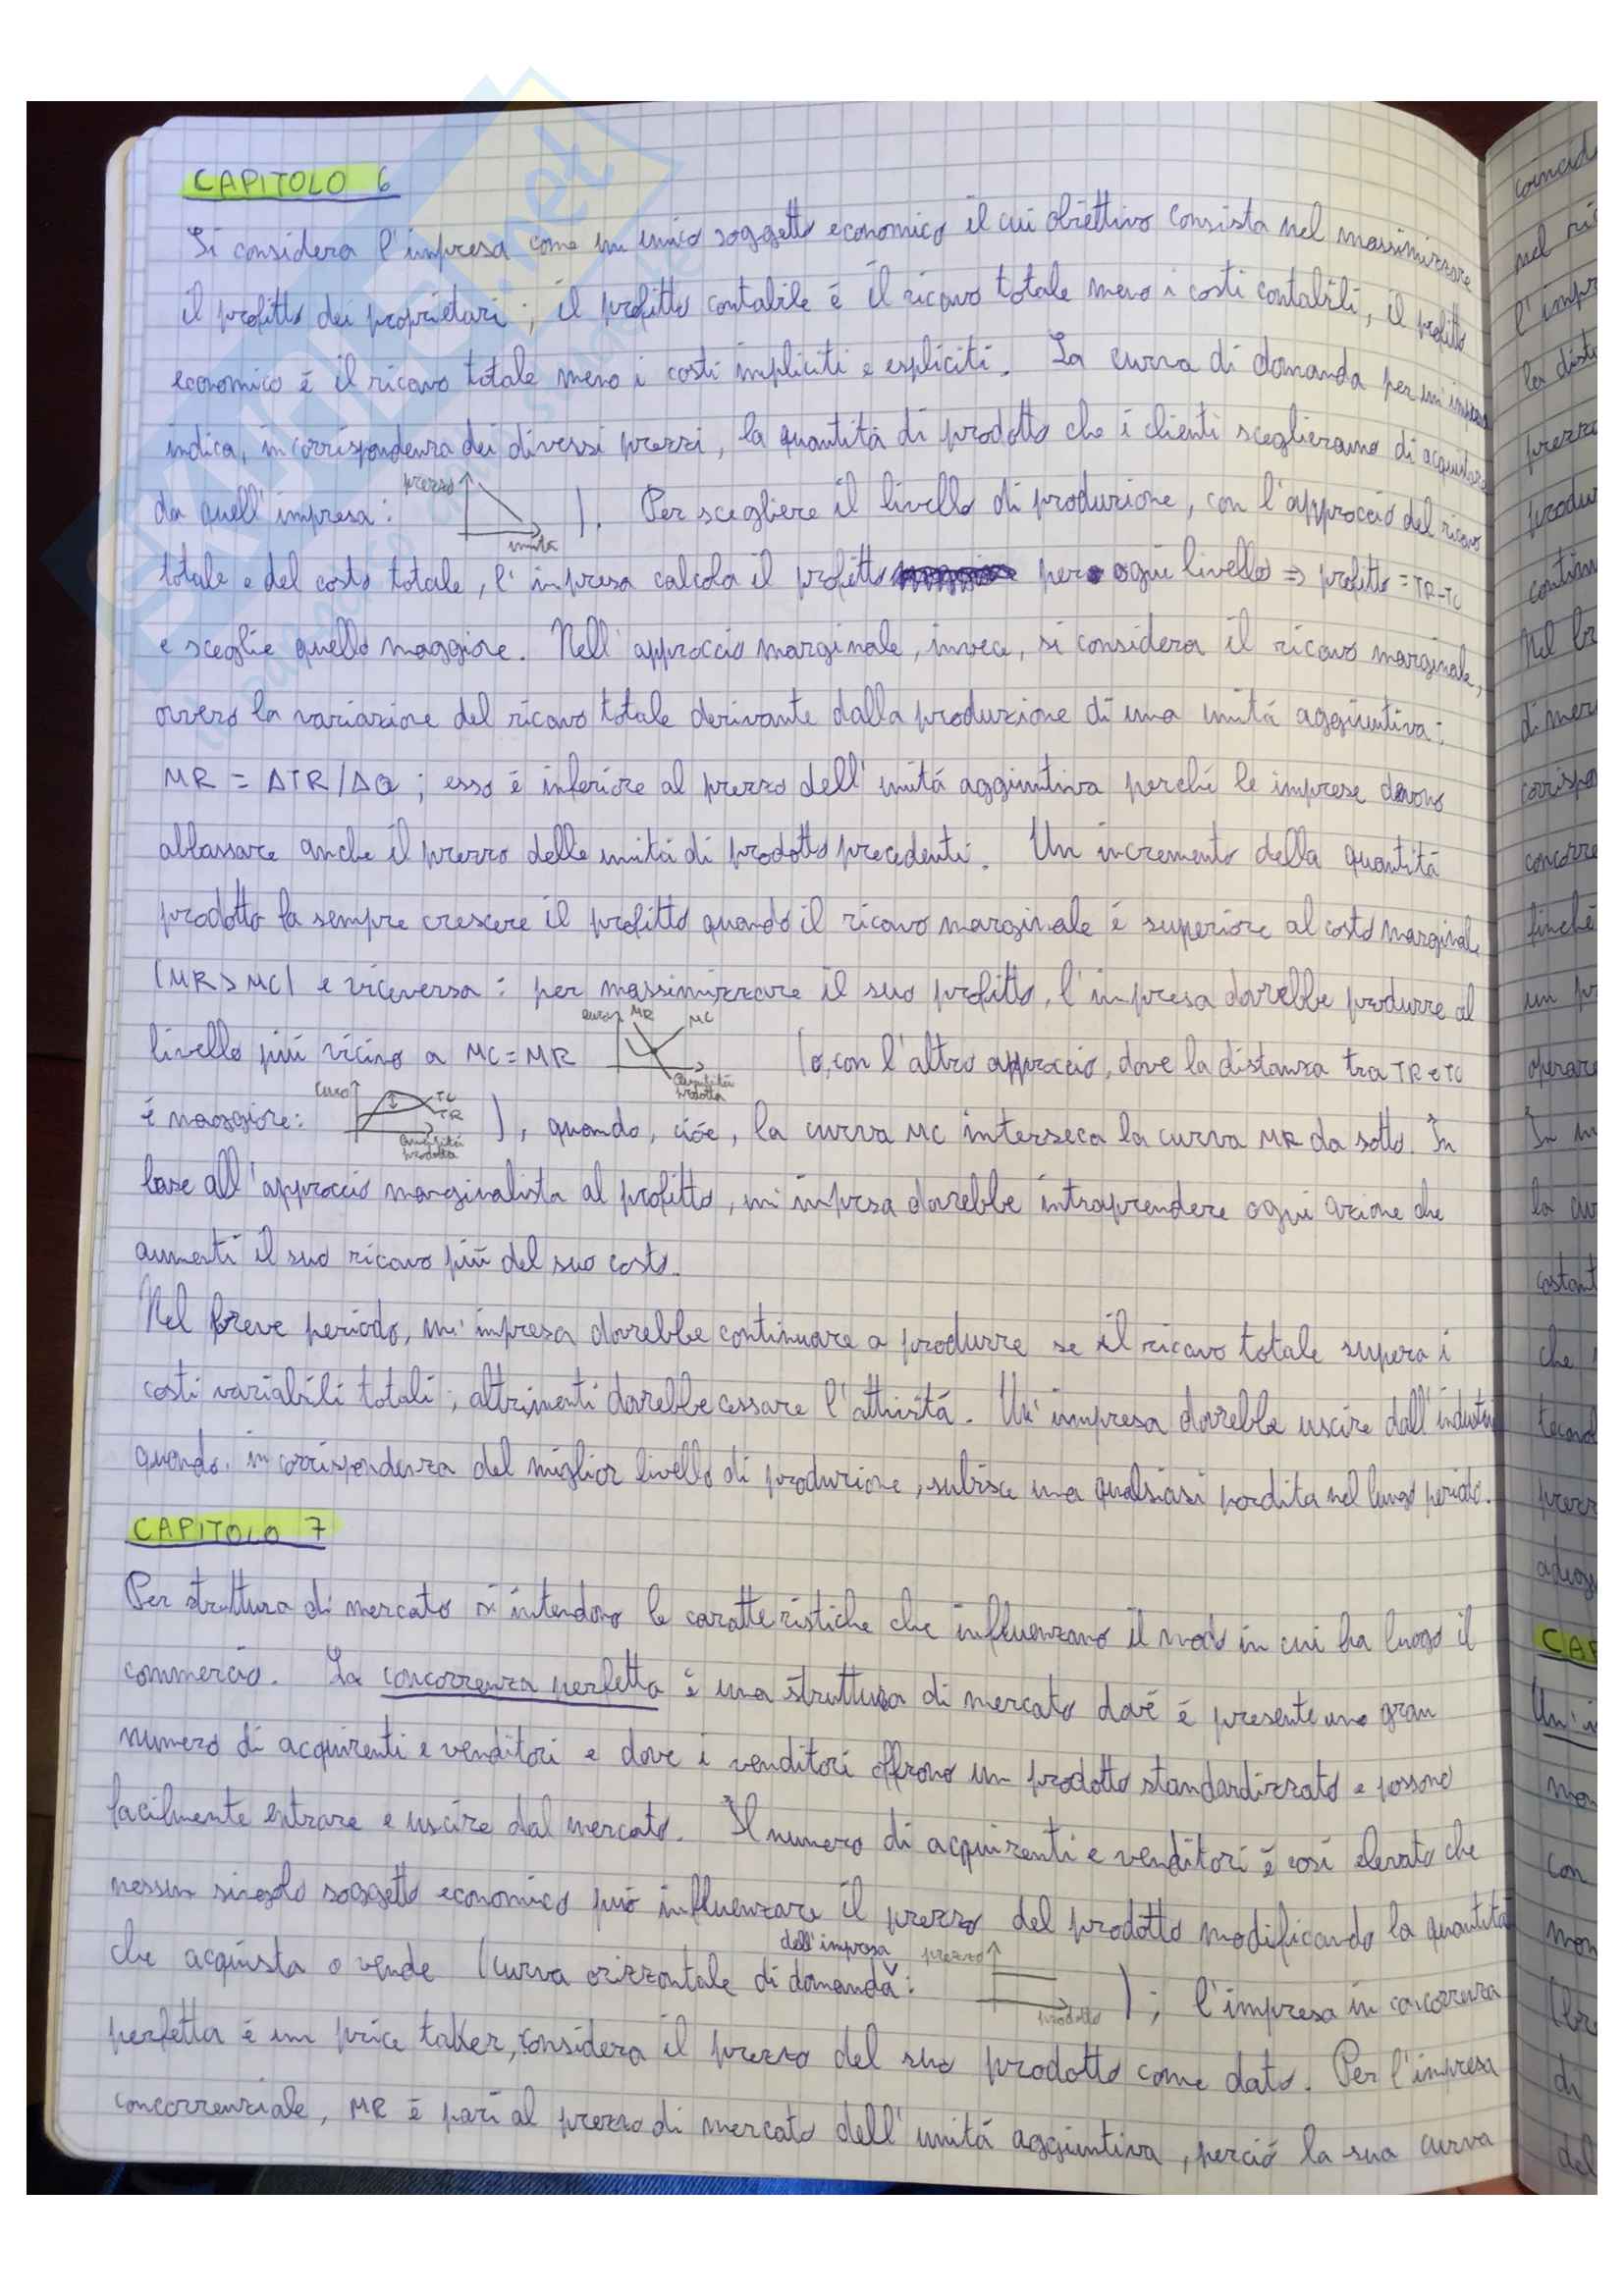 CAPITOLO 6
Si considera l'impresa come un unico soggetto economico il cui obiettivo consista nel massimizzare
il profitto dei proprietari; il profitto contabile é il ricavo totale meno i costi contabili, il profitto
economico é il ricavo totale meno i costi impliciti e espliciti. La curva di domanda per un'impresa
indica, in corrispondenza dei diversi prezzi, la quantitá di prodotto che i clienti sceglieranno di acquistare
da quell'impresa: prezzo unitá ). Per scegliere il livello di produzione, con l'approccio del ricavo
totale e del costo totale, l'impresa calcola il profitto per ogni livello => profitto = TR-TC
e sceglie quello maggiore. Nell'approccio marginale, invece, si considera il ricavo marginale,
ovvero la variazione del ricavo totale derivante dalla produzione di una unitá aggiuntiva:
MR = ΔTR/ΔQ ; esso é inferiore al prezzo dell'unitá aggiuntiva perché le imprese devono
abbassare anche il prezzo delle unitá di prodotto precedenti. Un incremento della quantitá
prodotta fa sempre crescere il profitto quando il ricavo marginale é superiore al costo marginale
(MR > MC) e viceversa: per massimizzare il suo profitto, l'impresa dovrebbe produrre al
livello piú vicino a MC = MR euro MR MC Quantitá prodotta (o, con l'altro approccio, dove la distanza tra TR e TC
é maggiore: euro TC TR Quantitá prodotta ), quando, cioé, la curva MC interseca la curva MR da sotto. In
base all'approccio marginalista al profitto, un'impresa dovrebbe intraprendere ogni azione che
aumenti il suo ricavo piú del suo costo.
Nel breve periodo, un'impresa dovrebbe continuare a produrre se il ricavo totale supera i
costi variabili totali; altrimenti dovrebbe cessare l'attivitá. Un'impresa dovrebbe uscire dall'industria
quando, in corrispondenza del miglior livello di produzione, subisce una qualsiasi perdita nel lungo periodo.
CAPITOLO 7
Per struttura di mercato si intendono le caratteristiche che influenzano il modo in cui ha luogo il
commercio. La concorrenza perfetta é una struttura di mercato dove é presente uno gran
numero di acquirenti e venditori e dove i venditori offrono un prodotto standardizzato e possono
facilmente entrare e uscire dal mercato. Il numero di acquirenti e venditori é cosí elevato che
nessun singolo soggetto economico puó influenzare il prezzo del prodotto modificando la quantitá
che acquista o vende (curva orizzontale di domanda dell'impresa: prezzo prodotto ); l'impresa in concorrenza
perfetta é un price taker, considera il prezzo del suo prodotto come dato. Per l'impresa
concorrenziale, MR é pari al prezzo di mercato dell'unitá aggiuntiva, perció la sua curva